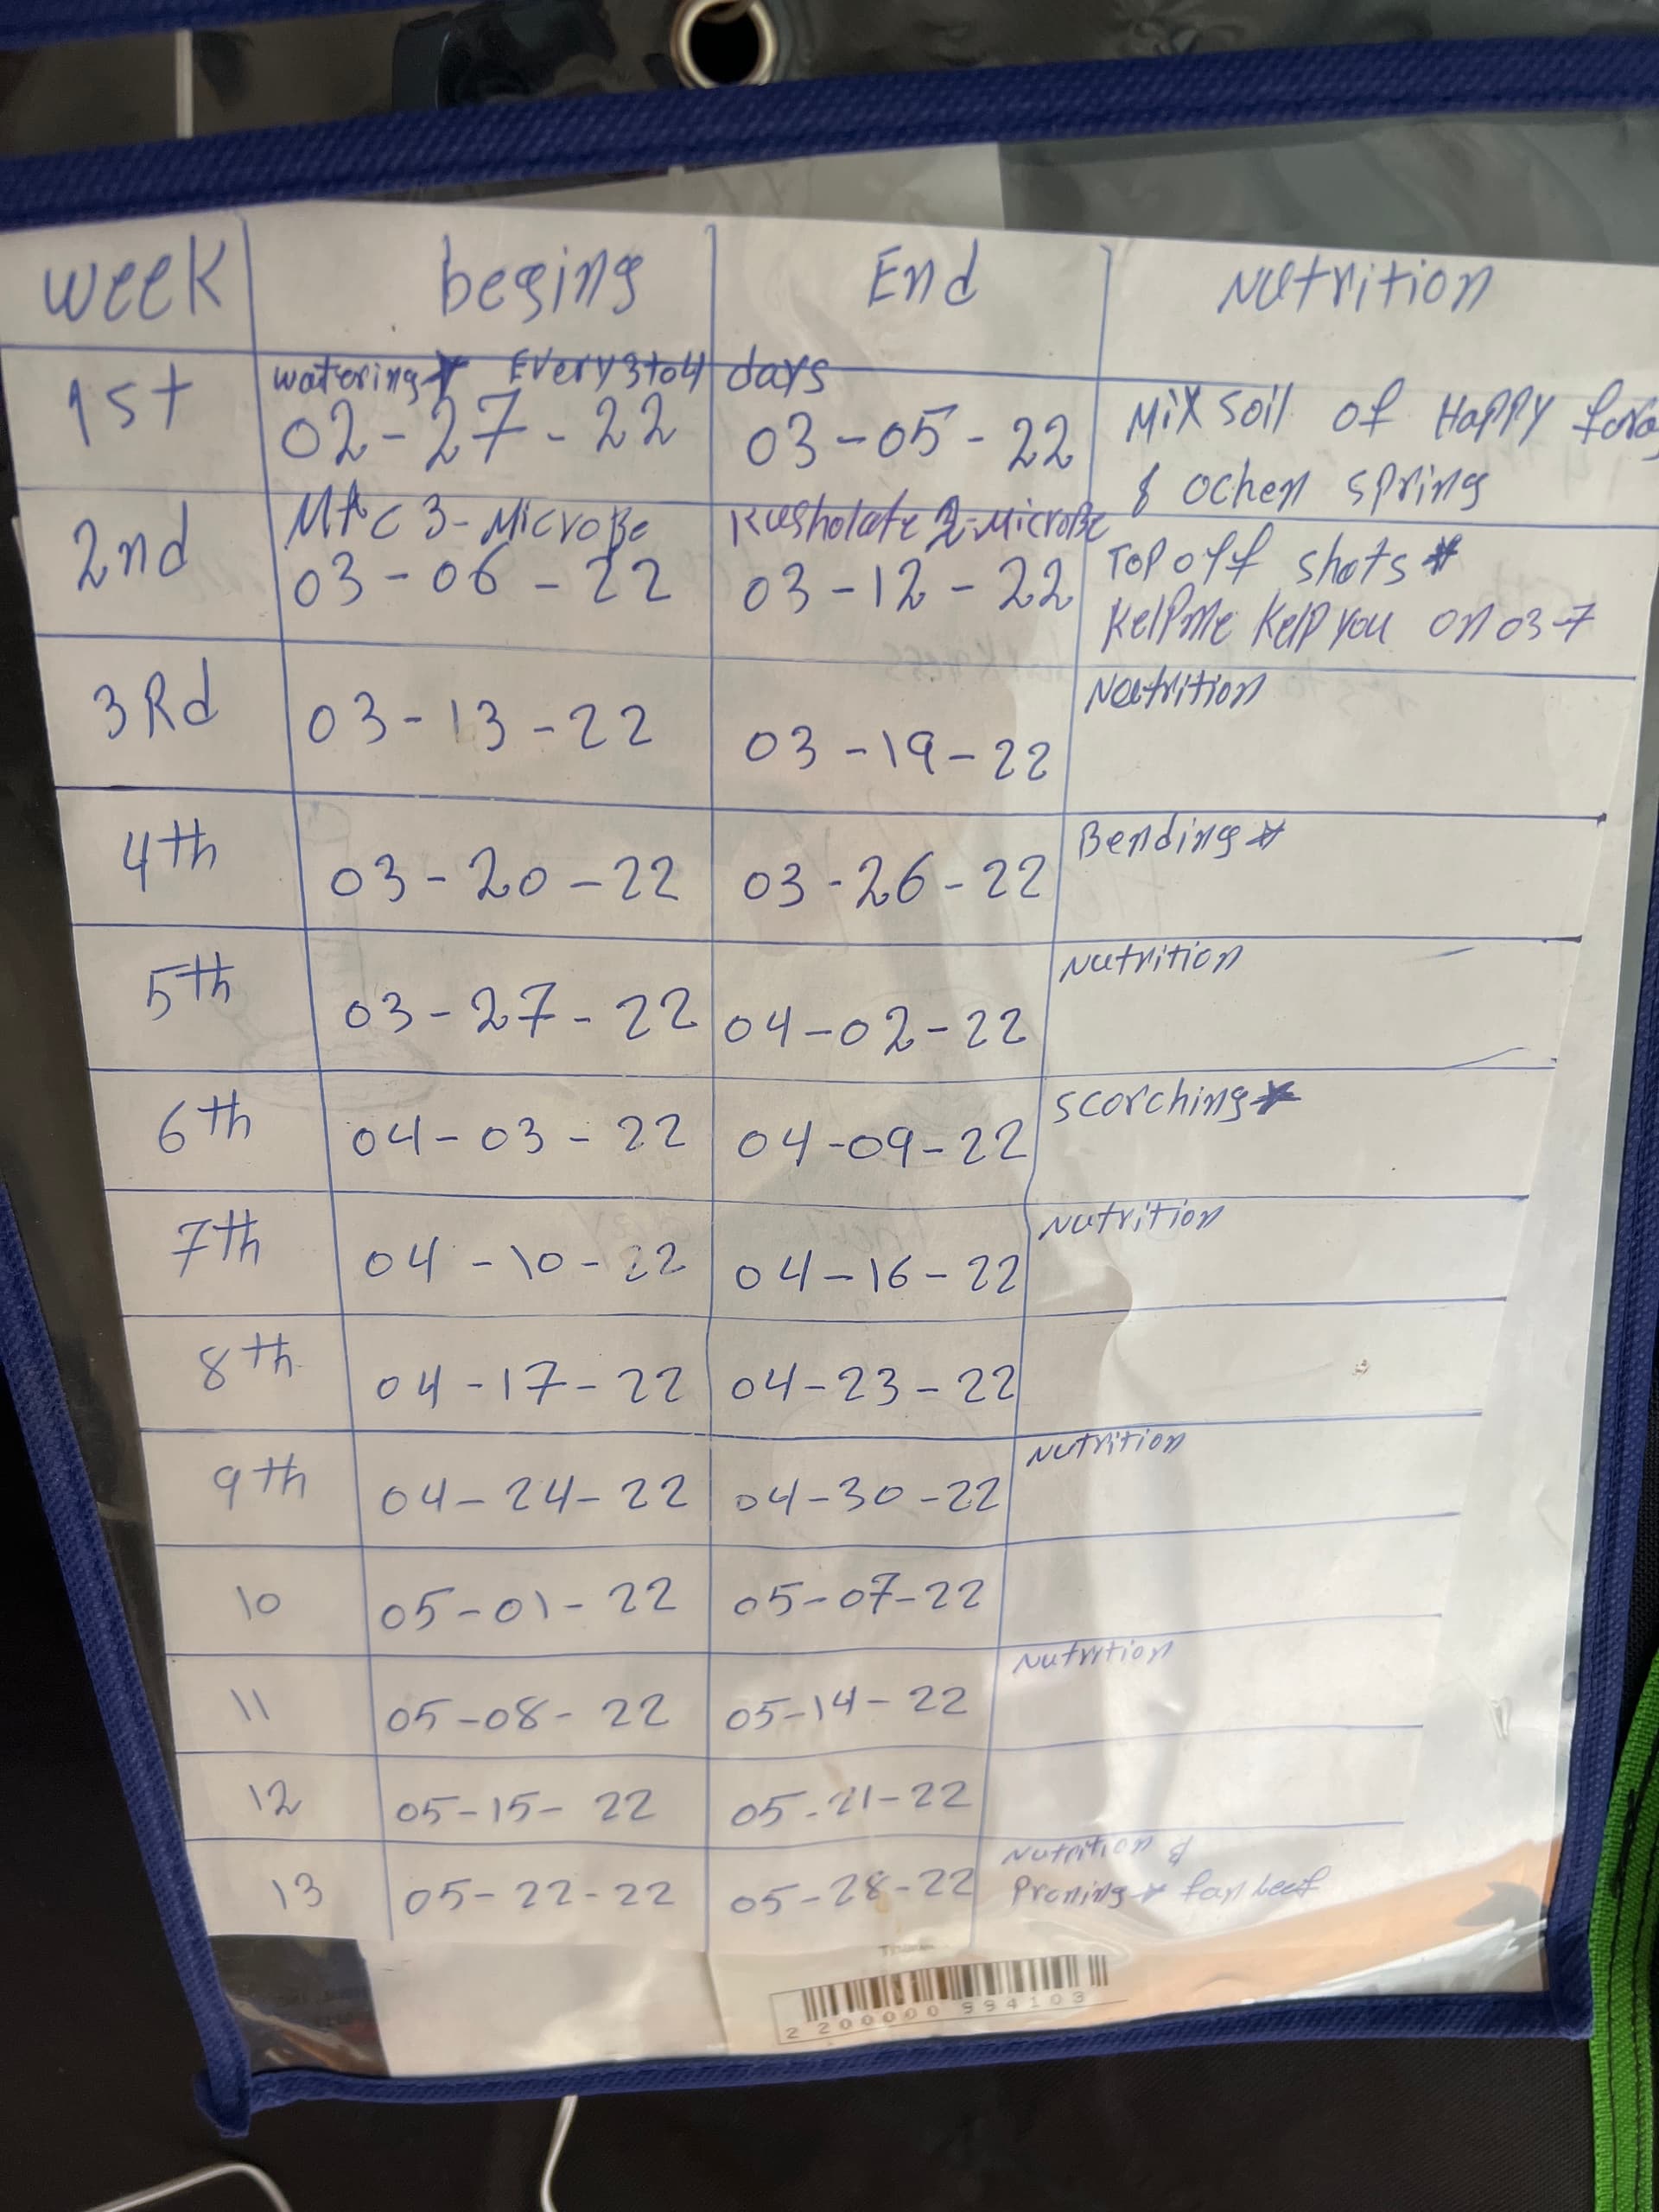 week begining End Nutrition
watering* Every 3 to 4 days
1st 02-27-22 03-05-22 Mix soil of Happy
& ochen spring
MAC 3-MicroBe Kusholate 2-MicroBe
2nd 03-06-22 03-12-22 Top off shots*
Kelp me Kelp you on 03-7
3Rd 03-13-22 03-19-22 Nutrition
4th 03-20-22 03-26-22 Bending*
5th 03-27-22 04-02-22 Nutrition
6th 04-03-22 04-09-22 scorching*
7th 04-10-22 04-16-22 Nutrition
8th 04-17-22 04-23-22
9th 04-24-22 04-30-22 Nutrition
10 05-01-22 05-07-22
11 05-08-22 05-14-22 Nutrition
12 05-15-22 05-21-22
13 05-22-22 05-28-22 Nutrition &
Proning* fan leef
2 200000 994103